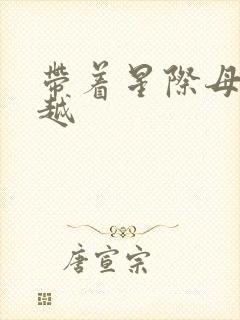 帶着星際母
越
唐宣宗